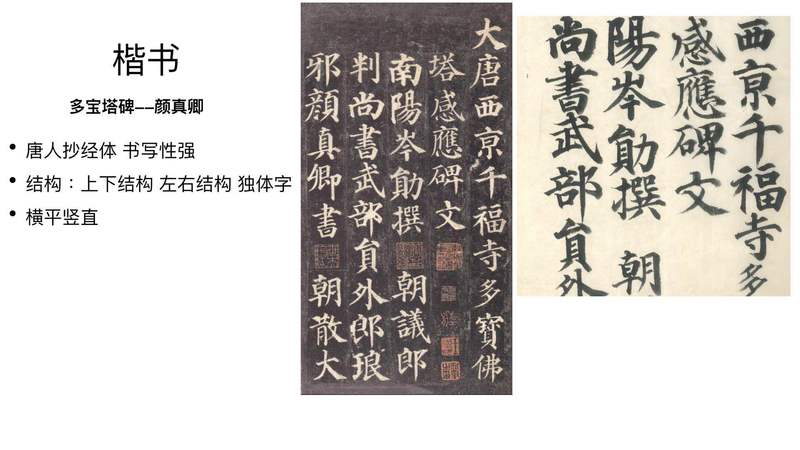 楷书
多宝塔碑——颜真卿
• 唐人抄经体 书写性强
• 结构：上下结构 左右结构 独体字
• 横平竖直
大唐西亰千福寺多寶佛
塔感應碑文
南陽岑勛撰 朝議郎
判尚書武部負外郎琅
邪顔真卿書 朝散大
西亰千福寺多
感應碑文
陽岑勛撰 朝
尚書武部負外